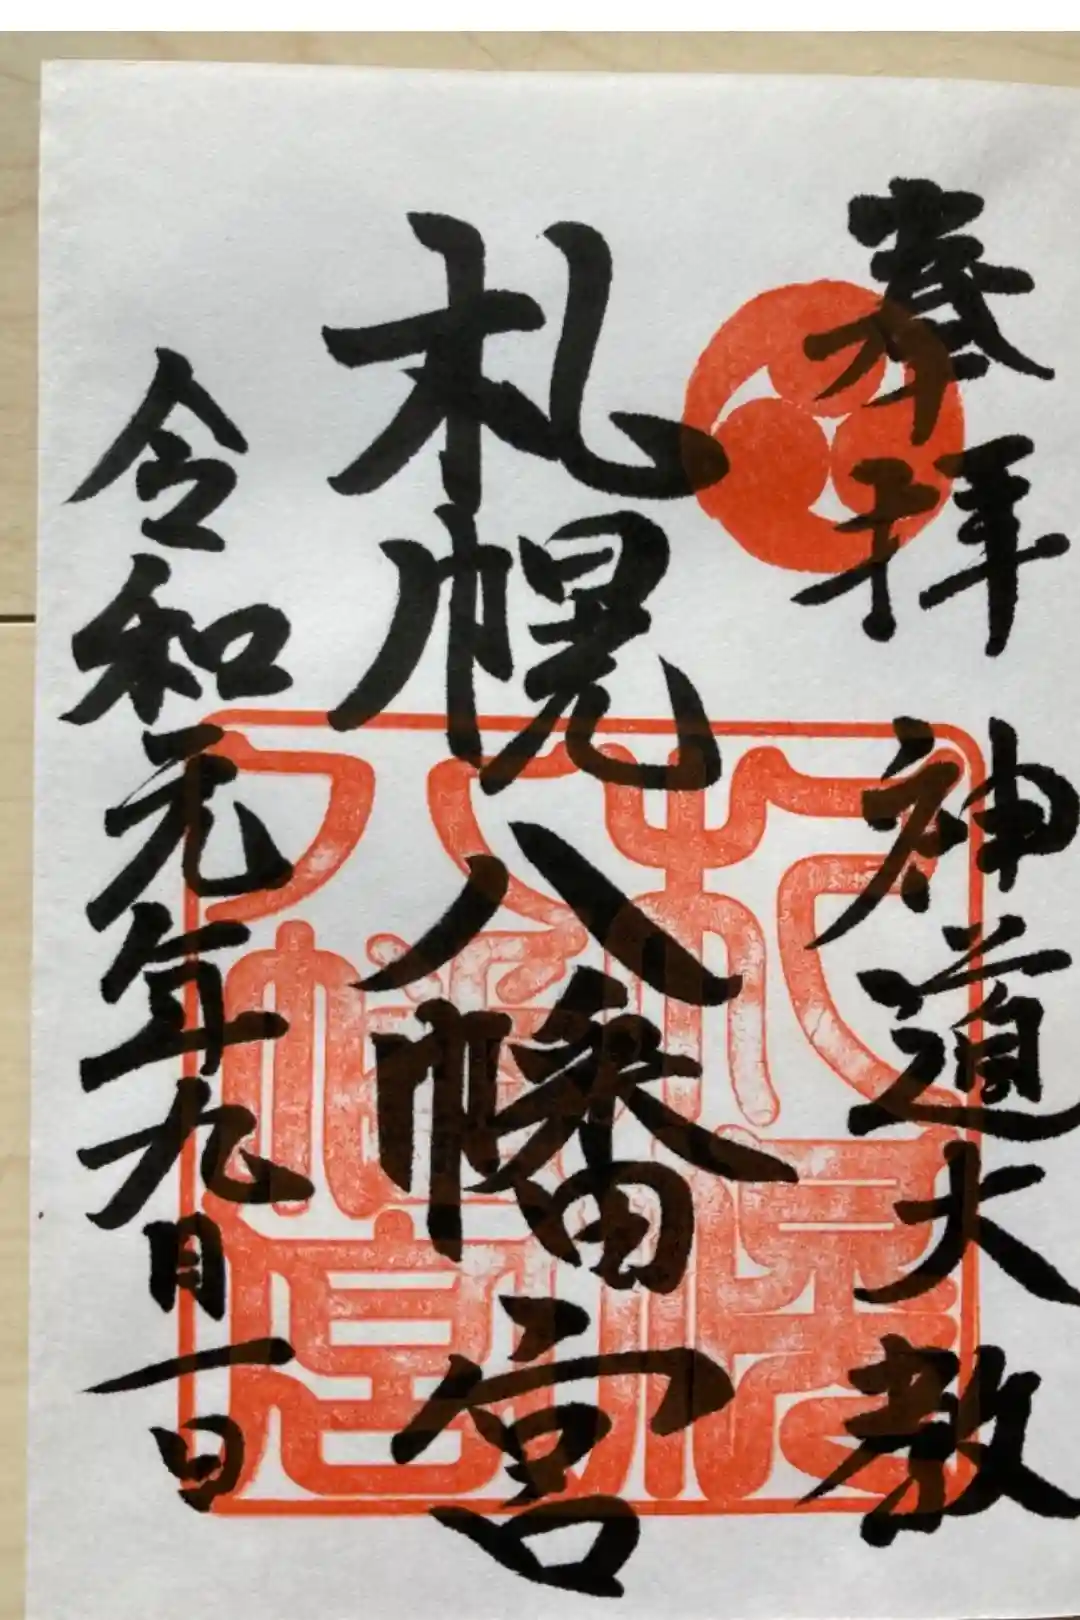 奉拝 神道大教
札幌八幡宮
令和元年九月一日
札幌八幡宮